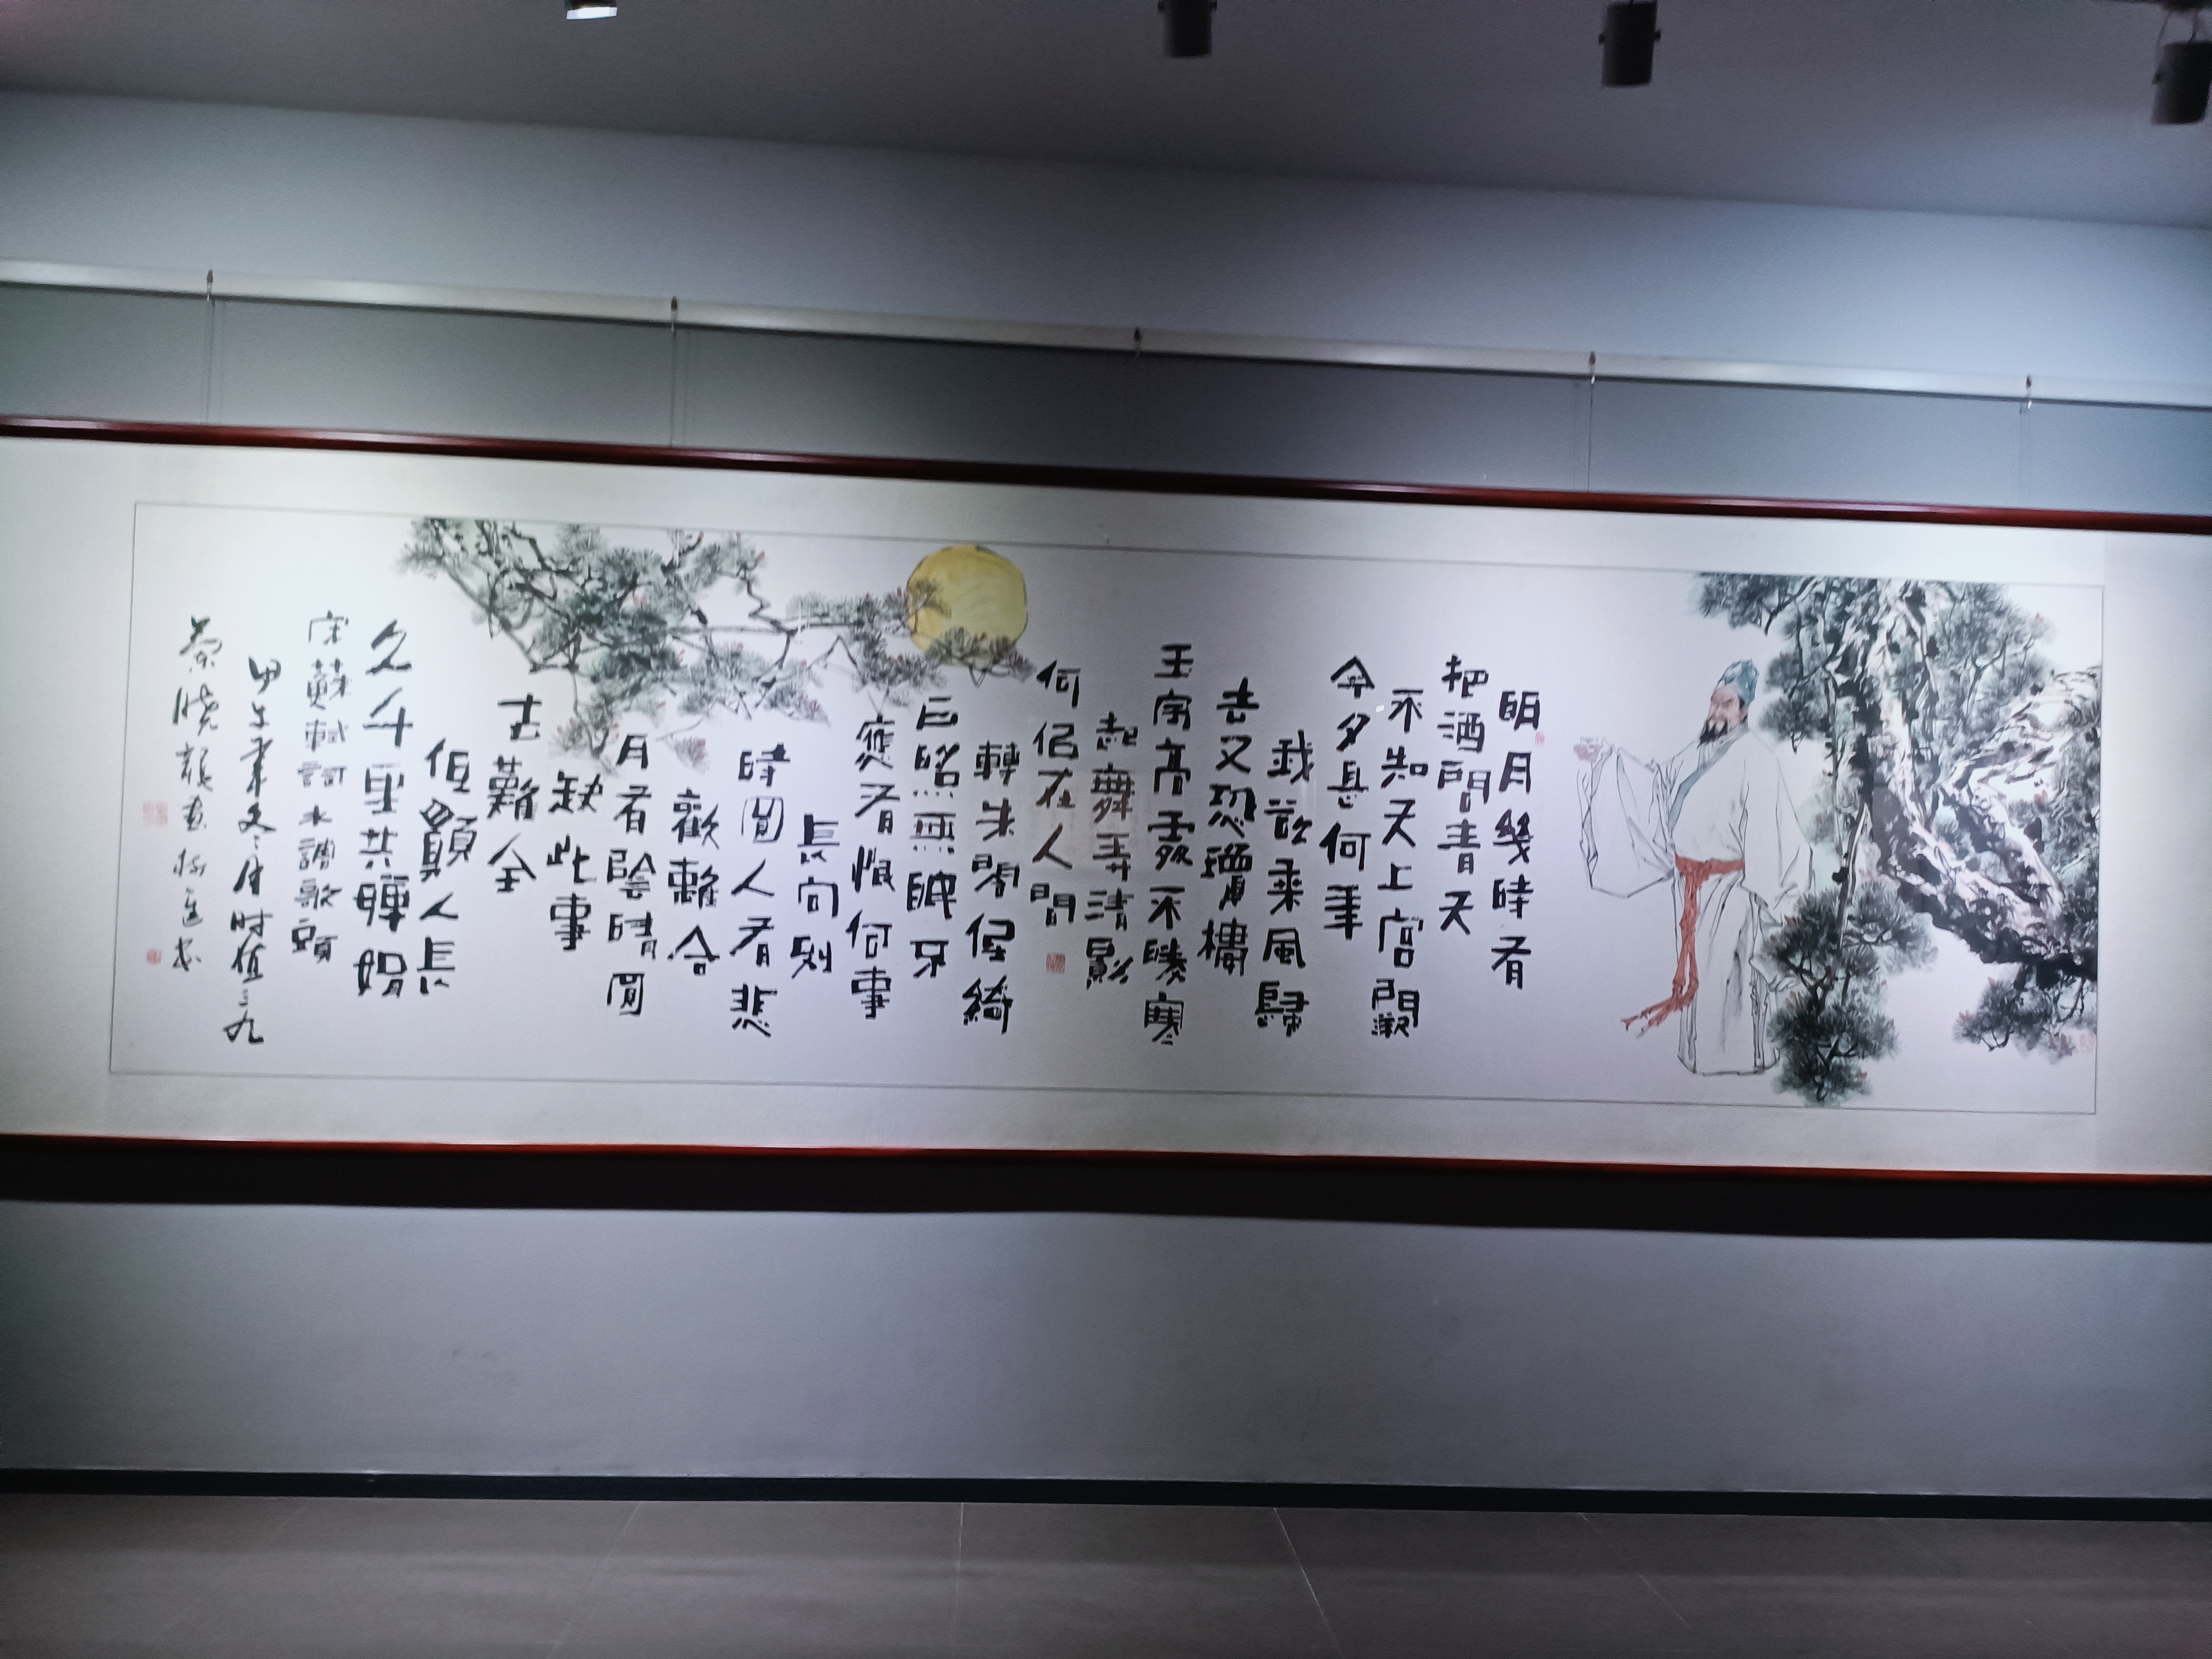 明月幾時有
把酒問青天
不知天上宮闕
今夕是何年
我欲乘風歸
去又恐瓊樓
玉宇高處不勝寒
起舞弄清影
何佀在人間
轉朱閣低綺
戶照無眠不
應有恨何事
長向別
時圓人有悲
歡離合
月有陰晴圓
缺此事
古難全
但願人長
久千里共嬋娟
宋蘇軾詞水調歌頭
甲午年冬月时值三九